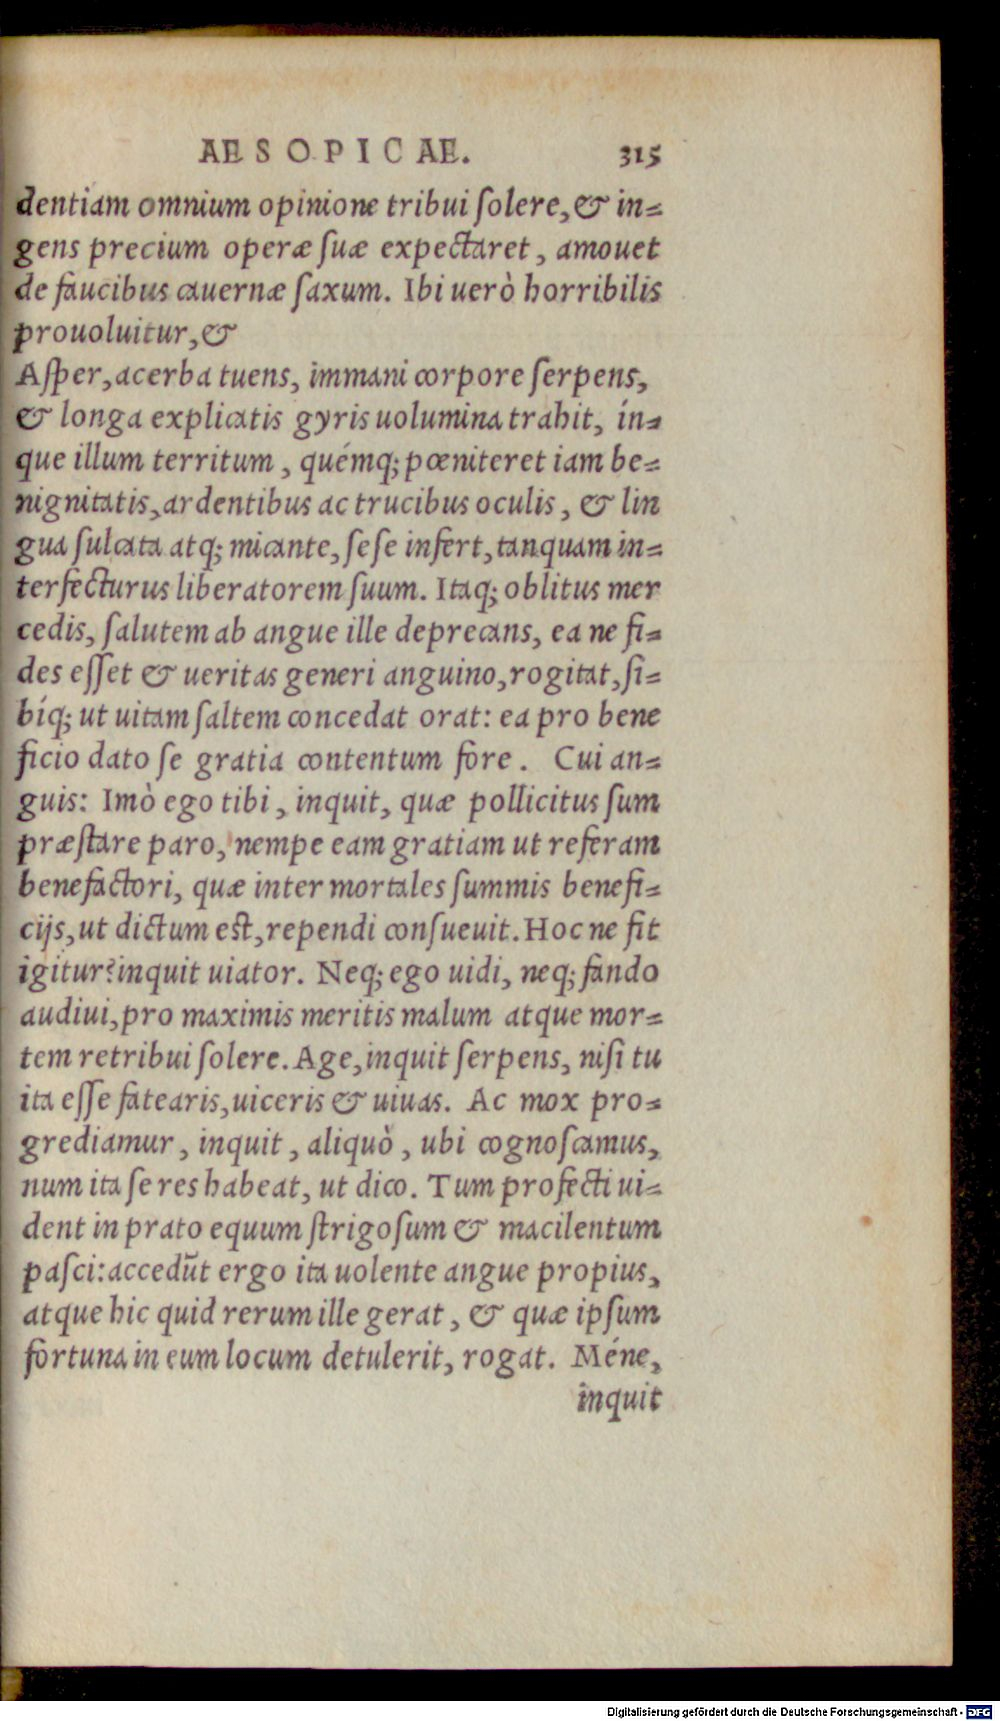 AESOPICAE. 315
dentiam omnium opinione tribui ſolere, & in-
gens precium operæ ſuæ expectaret, amouet
de faucibus cauernæ ſaxum. Ibi uerò horribilis
prouoluitur, &
Aſper, acerba tuens, immani corpore ſerpens,
& longa explicatis gyris uolumina trahit, ín-
que illum territum, quémq; pœniteret iam be-
nignitatis, ardentibus ac trucibus oculis, & lin
gua ſulcata atq; micante, ſeſe infert, tanquam in-
terfecturus liberatorem ſuum. Itaq; oblitus mer
cedis, ſalutem ab angue ille deprecans, ea ne fi-
des eſſet & ueritas generi anguino, rogitat, ſi-
bíq; ut uitam ſaltem concedat orat: ea pro bene
ficio dato ſe gratia contentum fore. Cui an-
guis: Imò ego tibi, inquit, quæ pollicitus ſum
præſtare paro, nempe eam gratiam ut referam
benefactori, quæ inter mortales ſummis benefi-
cijs, ut dictum eſt, rependi conſueuit. Hoc ne fit
igitur? inquit uiator. Neq; ego uidi, neq; fando
audiui, pro maximis meritis malum atque mor-
tem retribui ſolere. Age, inquit ſerpens, niſi tu
ita eſſe fatearis, uiceris & uiuas. Ac mox pro-
grediamur, inquit, aliquò, ubi cognoſcamus,
num ita ſe res habeat, ut dico. Tum profecti ui-
dent in prato equum ſtrigoſum & macilentum
paſci: accedūt ergo ita uolente angue propius,
atque hic quid rerum ille gerat, & quæ ipſum
fortuna in eum locum detulerit, rogat. Méne,
inquit
Digitalisierung gefördert durch die Deutsche Forschungsgemeinschaft - DFG